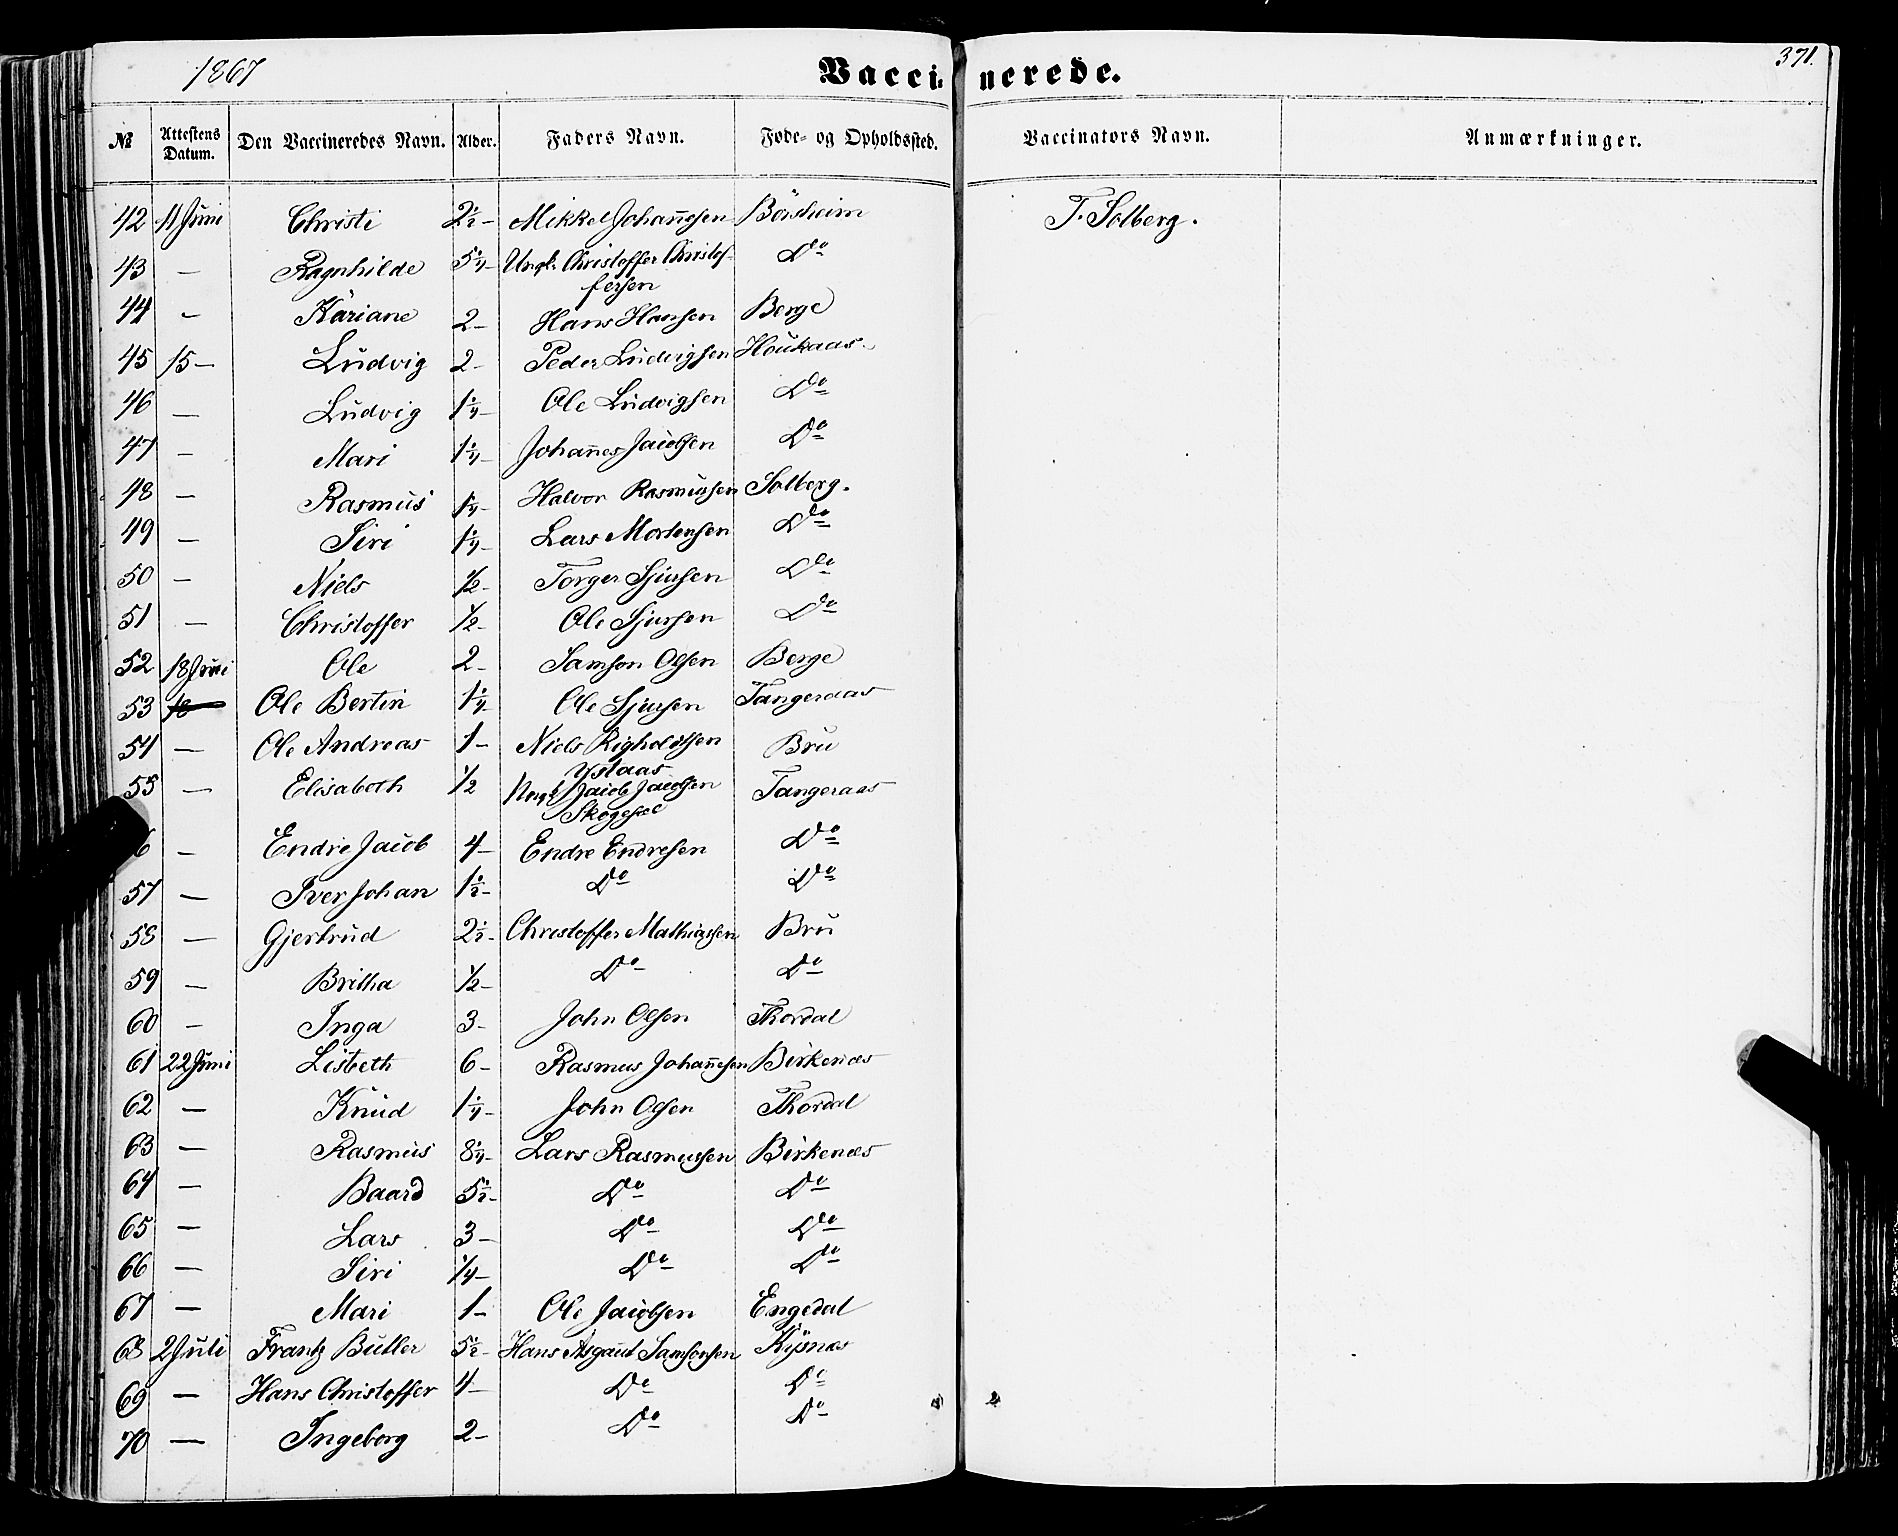 1867 Vaccinerede. 371.
№ Attestens Datum. Den Vaccineredes Navn. Alder. Faders Navn. Føde- og Opholdssted. Vaccinators Navn. Anmærkninger.
42 11 Juni Christi 2½- Mikkel Johan̄esen Börsheim T. Solberg.
43 — Ragnhilde 5¼- Ungk. Christoffer Christof-
fersen Do
44 - Kariane 2- Hans Hansen Berge
45 15- Ludvig 2- Peder Ludvigsen Houkaas
46 — Ludvig 1¼- Ole Ludvigsen Do
47 — Mari 1¼- Johan̄es Jacobsen Do
48 — Rasmus 1¼- Halvor Rasmussen Solberg.
49 — Siri 1¼- Lars Mortensen Do
50 — Niels ½- Torger Sjursen Do
51 — Christoffer ½- Ole Sjursen Do
52 18 Juni Ole 2- Samson Olsen Berge
53 18 Ole Bertin 1¼- Ole Sjursen Tangeraas
54 — Ole Andreas 1- Niels Righoldtsen Bru
Ystaas
55 — Elisabeth ½ Jacob Jacobsen Tangeraas
Skogesæl
6 — Endre Jacob 4- Endre Endresen Do
57 — Iver Johan 1½- Do Do
58 — Gjertrud 2½- Christoffer Mathiassen Bru
59 — Britha ½- Do Do
60 — Inga 3- John Olsen Thordal
61 22 Juni Lisbeth 6- Rasmus Johan̄esen Birkenæs
62 — Knud 1¼- John Olsen Thordal
63 — Rasmus 8¼- Lars Rasmussen Birkenæs
64 — Baard 5½- Do Do
65 — Lars 3- Do Do
66 — Siri ¼- Do Do
67 — Mari 1- Ole Jacobsen Engedal
68 2 Juli Frantz Butler 5½- Hans Asgaut Samsonsen Kysnæs
69 — Hans Christoffer 4- Do Do
70 — Ingeborg 2- Do Do